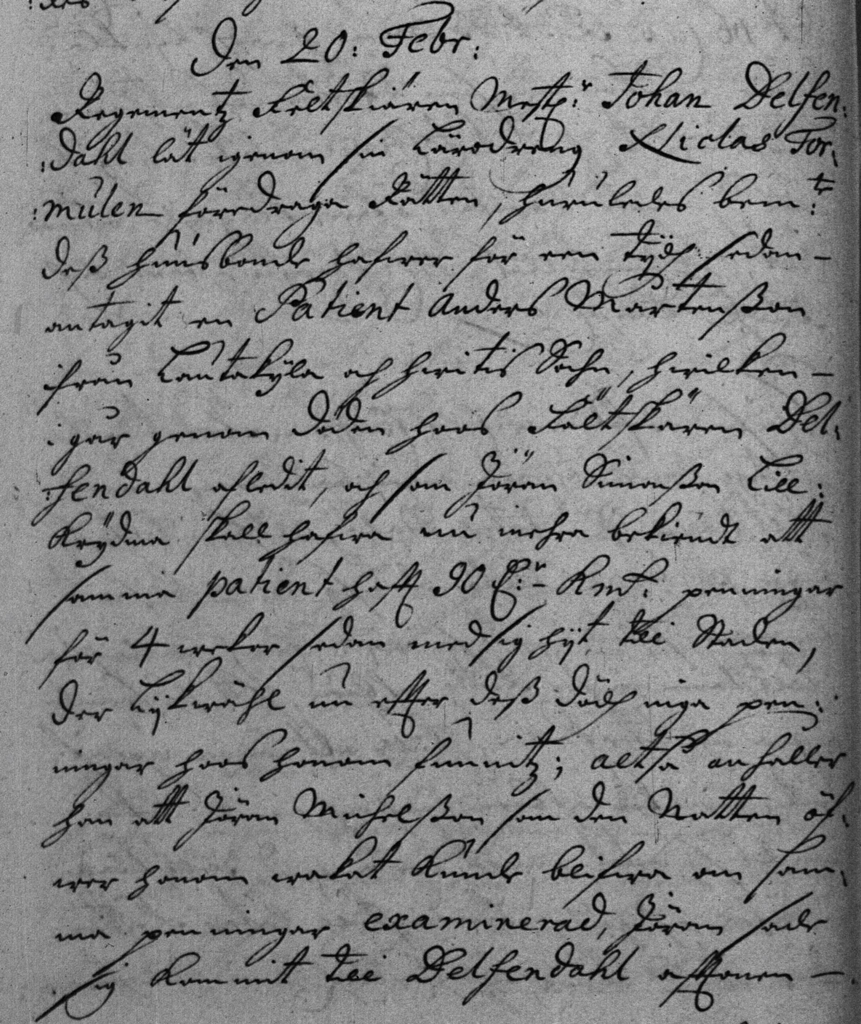 Den 20: Febr:
Regementz Feltskiären Mest:r Johan Delfen:
:dahl lät igenom sin Lärodreng Niclas For:
:mulen föredraga Rätten, huruledes bem:te
deß huusbonde hafwer för een tydh sedan –
antagit en Patient Anders Mårtenßon
ifrån Lautakÿla och hwitis Sochn, hwilken –
i går genom döden hoos Fältskären Del:
:fendahl afledit, och som Jöran Simonßon Lill:
Krÿdma skall hafwa nu mehra bekiendt att
samma patient haft 90 E:r – Kmt: penningar
för 4 wekor sedan med sig hÿt till Staden,
der lijkwähl nu efter deß dödh inga pen:
ningar hoos honom funnitz; altså anhåller
han att Jöran Michelßon som den Natten öf:
wer honom wakat kunde blifwa om sam:
ma penningar examinerad, Jöran sade
sig kommit till Delfendahl afftonen –